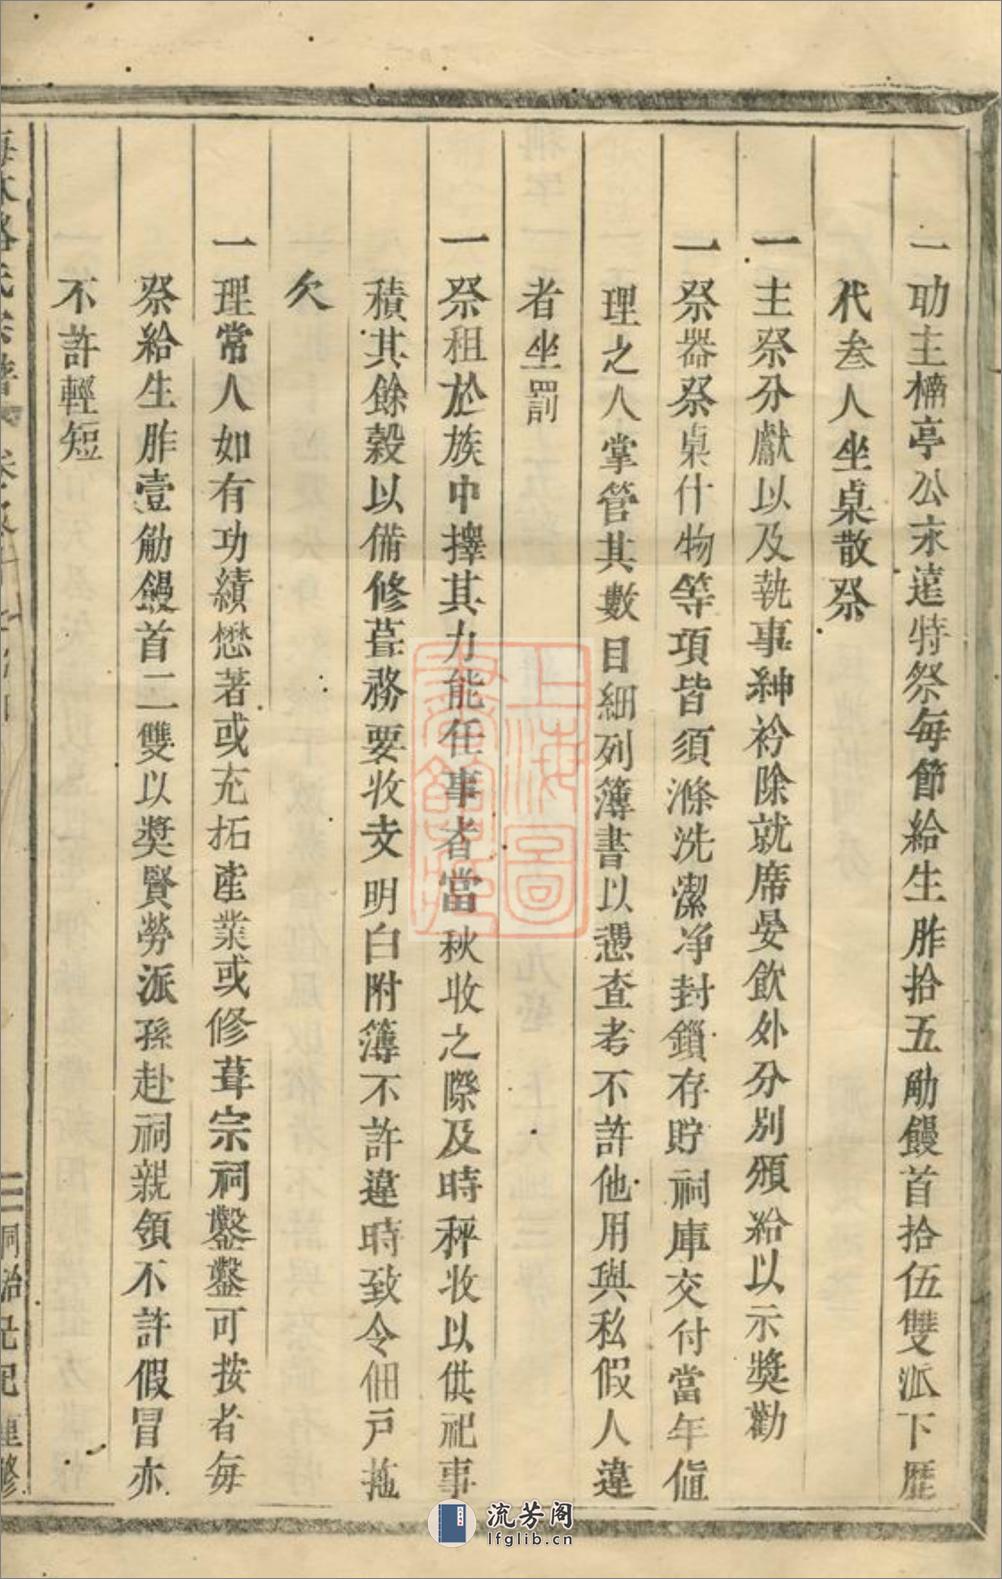 一功主楠亭公永遠特祭每節給生胙拾五觔饅首拾伍雙派下歷
代叁人坐桌散祭
一主祭分獻以及執事紳衿除就席晏飲外分別頒給以示獎勸
一祭器祭桌什物等項皆須滌洗潔净封鎖存貯祠庫交付當年值
理之人掌管其數目細列簿書以憑查考不許他用與私假人違
者坐罰
一祭租於族中擇其力能任事者當秋收之際及時秤收以供祀事
積其餘穀以備修葺務要收支明白附簿不許違時致令佃戶拖
欠
一理常人如有功績懋著或充拓產業或修葺宗祠鑿鑿可按者每
祭給生胙壹觔饅首二雙以獎賢勞派孫赴祠親領不許假冒亦
不許輕短
氏宗譜
同治元祀重修
上海圖
書館藏
流芳阁
lfglib.cn